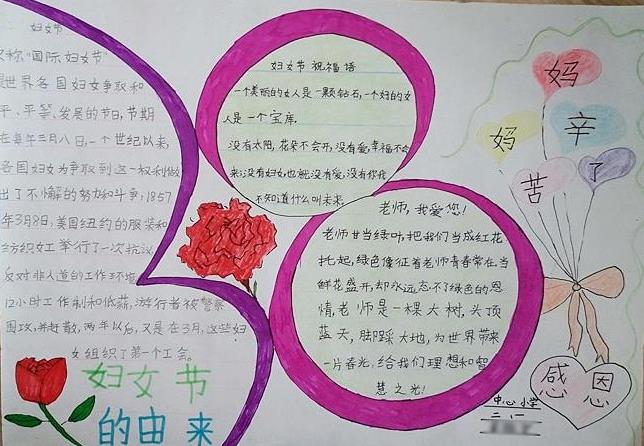 妇女节
又称“国际妇女节”
是世界各国妇女争取和
平、平等、发展的节日,节期
在每年三月八日,一个世纪以来,
各国妇女为争取到这一权利做
出了不懈的努力和斗争;1857
年3月8,美国纽约的服装和
纺织女工举行了一次抗议
反对非人道的工作环境
12小时工作制和低薪,游行者被警察
围攻,并赶散,两年以后,又是在3月,这些妇
女组织了第一个工会。
妇女节
的由来
妇女节祝福语
一个美丽的女人是一颗钻石,一个妇的女
人是一个宝库。
没有太阳,花朵不会开,没有爱,幸福不会
来;没有妇女,也就没有爱,没有你我
不知道什么叫未来,
老师,我爱您!
老师甘当绿叶,把我们当成红花
托起,绿色像征着老师青春常在,当
鲜花盛开,却永远忘不了绿色的恩
情,老师是一棵大树,头顶
蓝天,脚踩大地,为世界带来
一片春光,给我们理想和智
慧之光!
妈
妈
辛
苦
了
感恩
中心小学
二、1